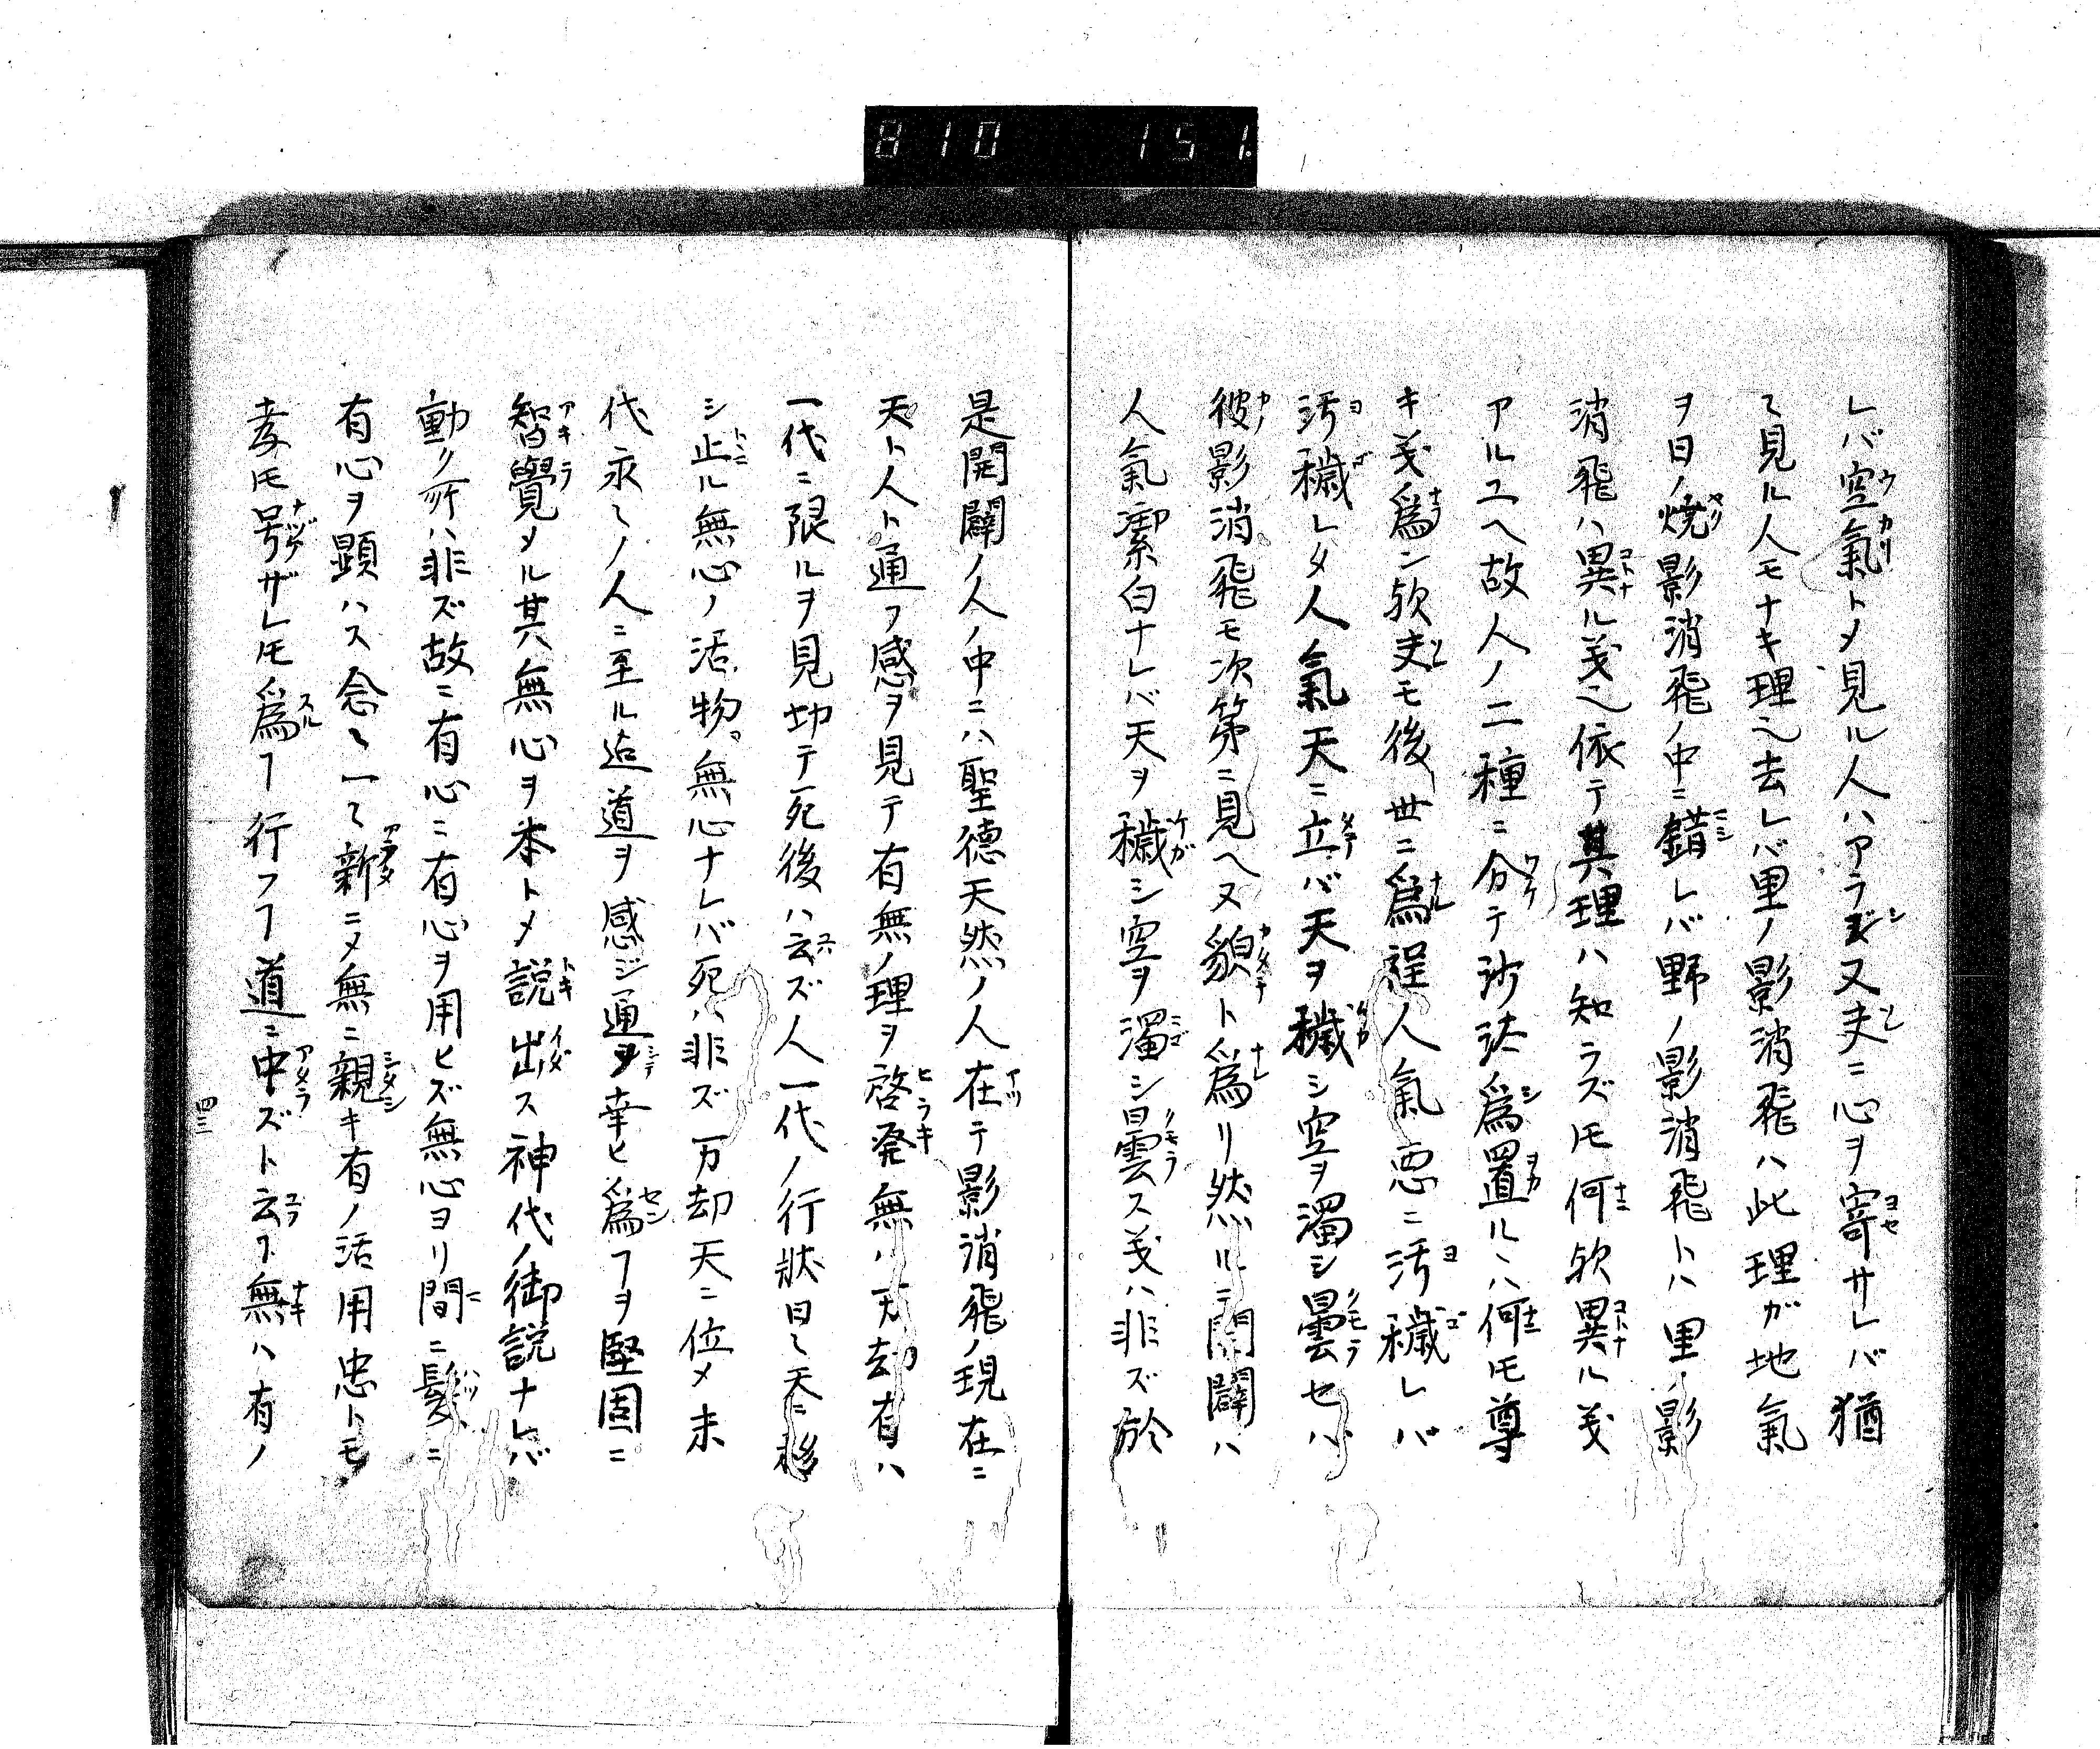 810 151.
レバ空氣トメ見ル人ハアラジ又夫ニ心ヲ寄サレバ猶
〻見ル人モナキ理也去レバ里ノ影消飛ハ此理ガ地氣
ヲ日ノ焼影消飛ノ中ニ錯レバ野ノ影消飛トハ里ノ影
消飛ハ異ル義也依テ其理ハ知ラズ𪜈何欤異ル義
アルユヘ故人ノ二種ニ分テ沙汰爲置ルハ何𪜈尊
キ義爲ン欤夫モ後世ニ爲程人氣悪ニ汚穢レバ
汚穢レタ人氣天ニ立バ天ヲ穢シ空ヲ濁シ曇セバ
彼影消飛モ次第ニ見ヘヌ貌ト爲リ然ルニ開闢ハ
人氣潔白ナレバ天ヲ穢シ空ヲ濁シ曇ス義ハ非ズ於
是開闢ノ人ノ中ニハ聖德天然ノ人在テ影消飛ノ現在ニ
天ト人ト通フ感ヲ見テ有無ノ理ヲ啓発無ハ万劫有ハ
一代ニ限ルヲ見切テ死後ハ云ズ人一代ノ行狀日〻天ニ移
シ止ル無心ノ活物無心ナレバ死ハ非ズ万却天ニ位メ末
代永〻ノ人ニ至ル迠道ヲ感ジ通ヲ幸ヒ爲ヿヲ堅固ニ
智覺メル其無心ヲ本トメ説出ス神代ノ御説ナレバ
動ノ所ハ非ズ故ニ有心ニ有心ヲ用ヒズ無心ヨリ間ニ髮ニ
有心ヲ顕ハス念〻一〻新ニメ無ニ親キ有ノ活用忠トモ
孝𪜈号ザレ𪜈爲ヿ行フヿ道ニ中ズト云ヿ無ハ有ノ
四三